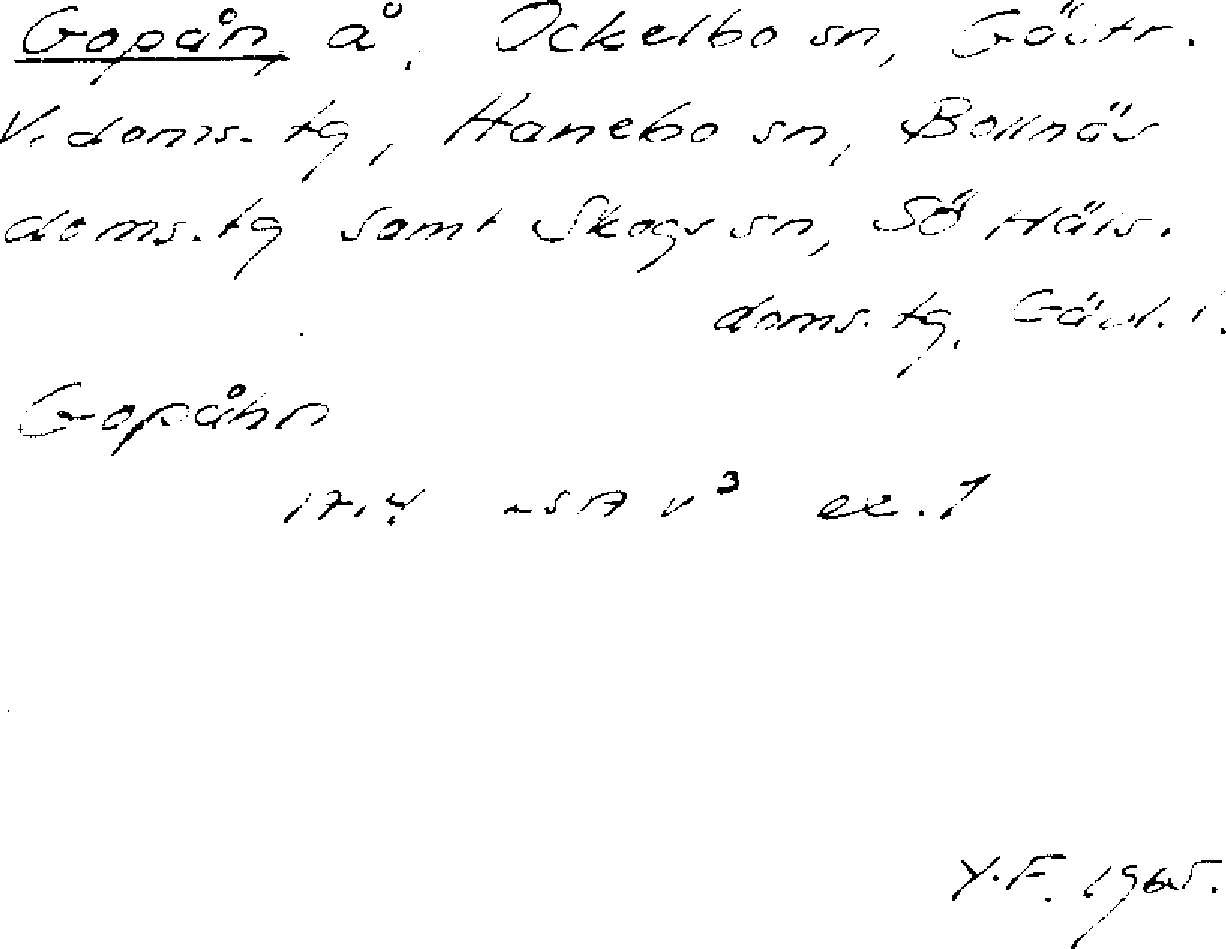 Gopån, å, Ockelbo sn, Gästr.
V. doms. tg, Hanebo sn, Bollnäs
doms. tg samt Skogs sn, Sö Häls.
doms. tg. Gävl. l.
Gopåhn
v³ ex. 1
Y.F. 1965.